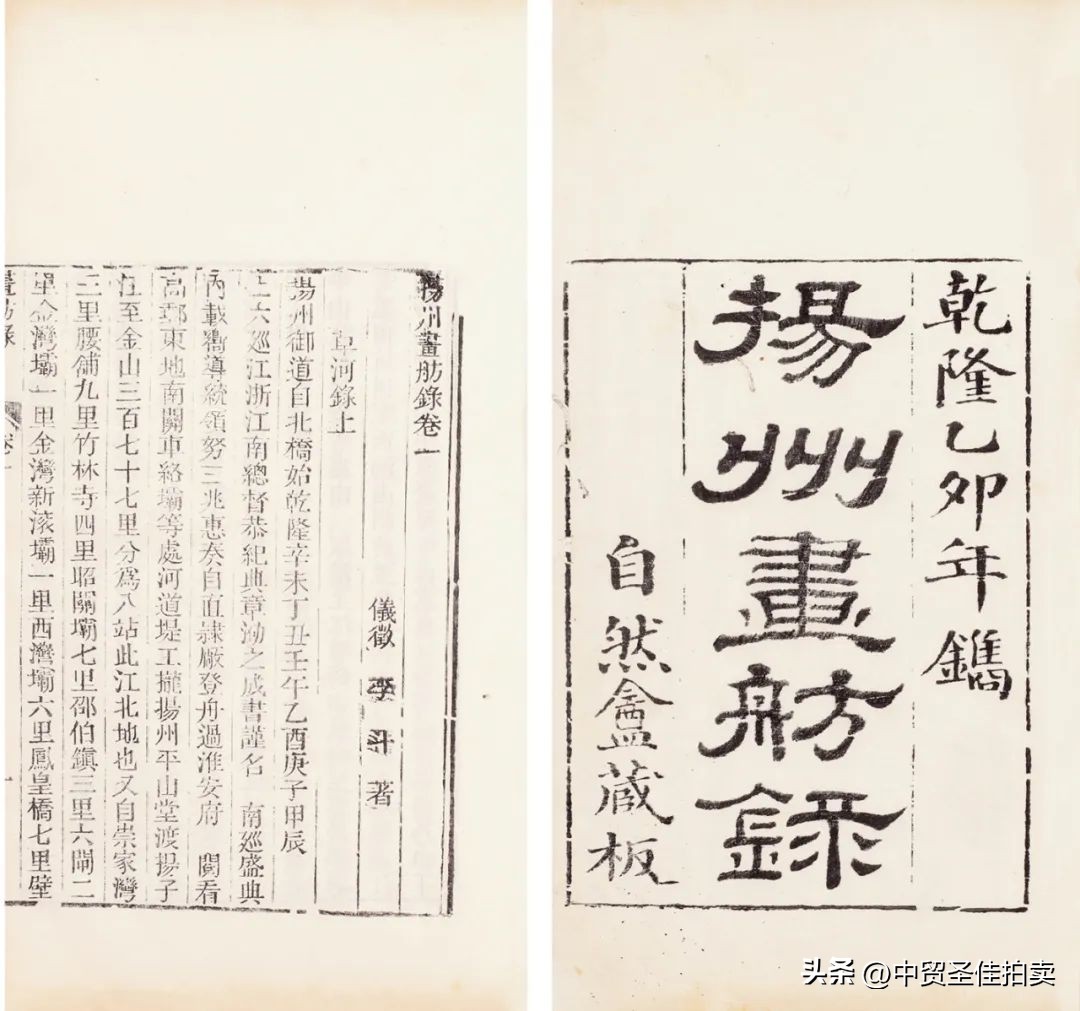 乾隆乙卯年鐫
揚州畫舫錄
自然盦藏板
揚州畫舫錄卷一
儀徵 李斗 著
草河錄上
揚州御道自北橋始乾隆辛未丁丑壬午乙酉庚子甲辰
上六巡江浙江南總督恭紀典章泐之成書謹名 南巡盛典
內載嚮導統領努三兆惠奏自直隸廠登舟過淮安府 閱看
高郵東地南關車絡壩等處河道堤工攏揚州平山堂渡揚子
江至金山三百七十七里分爲八站此江北地也又自崇家灣
二里腰舖九里竹林寺四里昭關壩七里邵伯鎮三里六閘二
里金灣壩一里金灣新滾壩一里西灣壩六里鳳皇橋七里壁
畫舫錄
卷一
一
头条 @中贸圣佳拍卖